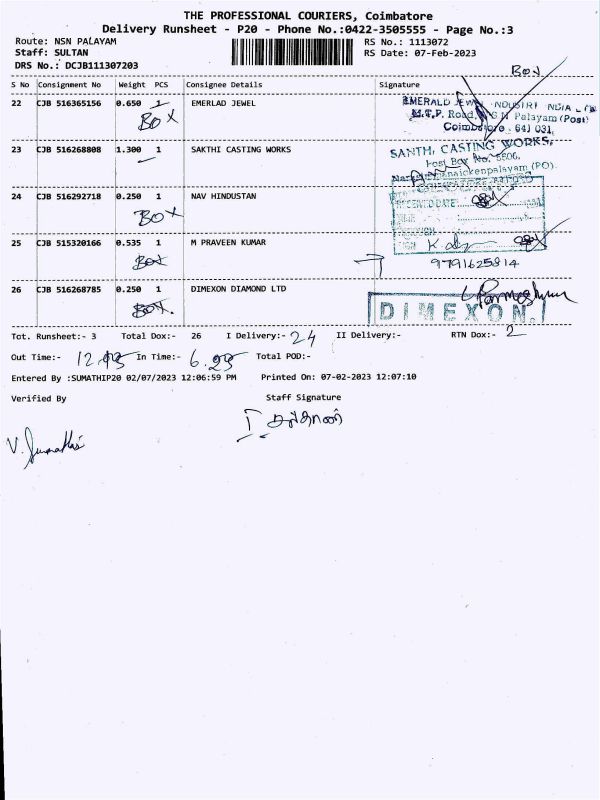 THE PROFESSIONAL COURIERS, Coimbatore
Delivery Runsheet - P20 - Phone No.:0422-3505555 - Page No.:3
Route: NSN PALAYAM RS No.: 1113072
Staff: SULTAN RS Date: 07-Feb-2023
DRS No.: DCJB111307203
BOX
S No Consignment No Weight PCS Consignee Details Signature
22 CJB 516365156 0.650 1 EMERLAD JEWEL
BOX
EMERALD JEWEL INDUSTRY INDIA
M.T.P. Road, Palayam (Post)
Coimbatore - 641 031
23 CJB 516268808 1.300 1 SAKTHI CASTING WORKS
SANTHI CASTING WORKS,
Post Box No. 5606,
Narasimhanaickenpalayam (PO).
24 CJB 516292718 0.250 1 NAV HINDUSTAN
BOX
25 CJB 515320166 0.535 1 M PRAVEEN KUMAR
BOX
9791625814
26 CJB 516268785 0.250 1 DIMEXON DIAMOND LTD
BOX.
DIMEXON.
Tot. Runsheet:- 3 Total Dox:- 26 I Delivery:- 24 II Delivery:- RTN Dox:- 2
Out Time:- In Time:- Total POD:-
Entered By :SUMATHIP20 02/07/2023 12:06:59 PM Printed On: 07-02-2023 12:07:10
Verified By Staff Signature